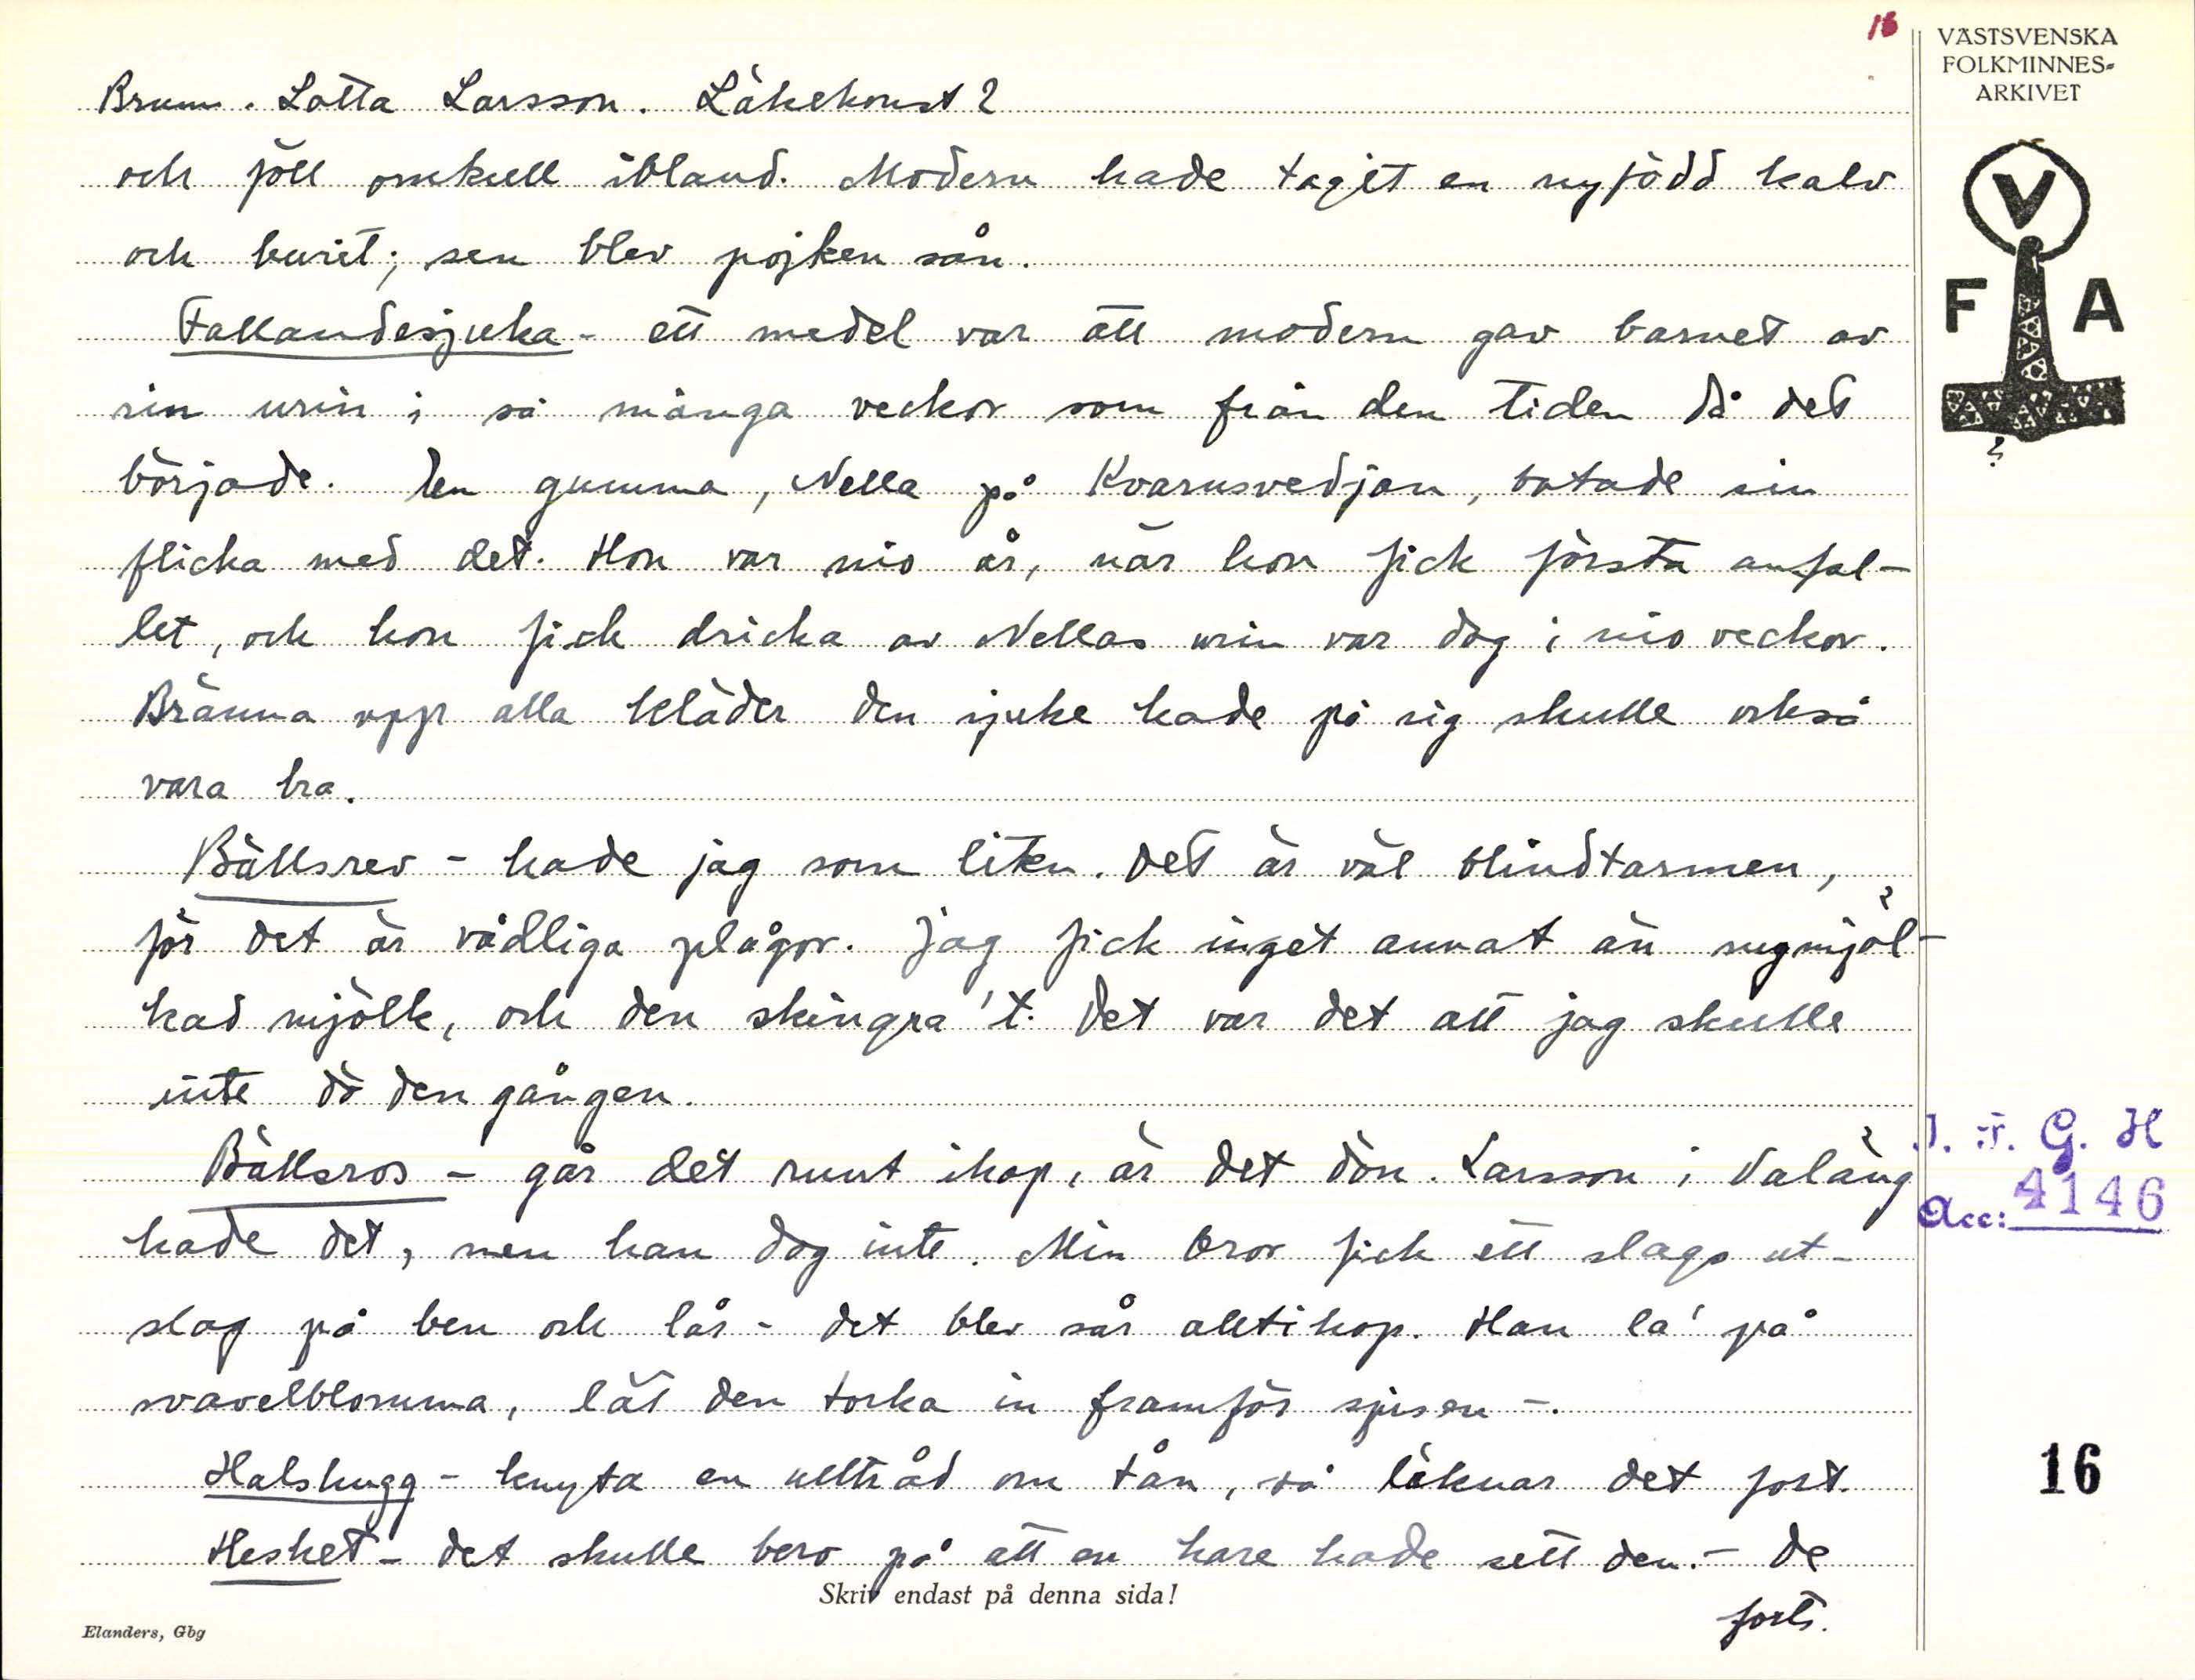 16
VÄSTSVENSKA
FOLKMINNES-
ARKIVET
V
F A
Brunn. Lotta Larsson. Läkekonst 2
och föll omkull ibland. Modern hade tagit en nyfödd kalv
och burit; sen blev pojken sån.
Fallandesjuka - ett medel var att modern gav barnet av
sin urin i så många veckor som från den tiden då det
började. En gumma, Nella på Kvarnsvedjan, botade sin
flicka med det. Hon var nio år, när hon fick första anfal-
let, och hon fick dricka av Nellas urin var dag i nio veckor.
Bränna opp alla kläder den sjuke hade på sig skulle också
vara bra.
Bällsrev - hade jag som liten. Det är väl blindtarmen,
för det är vådliga plågor. Jag fick inget annat än nymjöl-
kad mjölk, och den skingra't. Det var det att jag skulle
inte dö den gången.
Bällsros - går det runt ihop, är det dön. Larsson i Valäng
hade det, men han dog inte. Min bror fick ett slags ut-
slag på ben och lår - det blev sår alltihop. Han la' på
svavelblomma, lät den torka in framför spisen -.
Halshugg - knyta en ulltråd om tån, så läknar det fort.
Heshet - det skulle bero på att en hare hade sett den. - De
forts.
Skriv endast på denna sida!
Elanders, Gbg
I. F. G. H
Acc: 4146
16